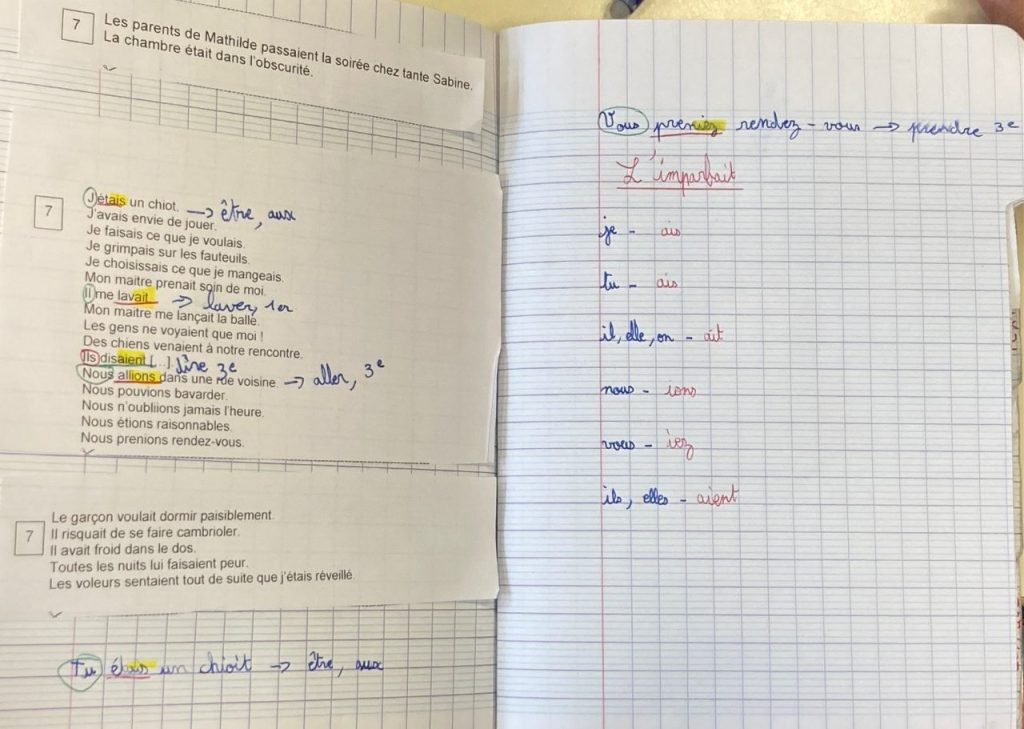 7
Les parents de Mathilde passaient la soirée chez tante Sabine.
La chambre était dans l'obscurité.
7
J'étais un chiot. → être, aux
J'avais envie de jouer.
Je faisais ce que je voulais.
Je grimpais sur les fauteuils.
Je choisissais ce que je mangeais.
Mon maitre prenait soin de moi.
Il me lavait. → laver, 1er
Mon maitre me lançait la balle.
Les gens ne voyaient que moi !
Des chiens venaient à notre rencontre.
Ils disaient [...] dire 3e
Nous allions dans une rue voisine → aller, 3e
Nous pouvions bavarder.
Nous n'oubliions jamais l'heure.
Nous étions raisonnables.
Nous prenions rendez-vous.
7
Le garçon voulait dormir paisiblement.
Il risquait de se faire cambrioler.
Il avait froid dans le dos.
Toutes les nuits lui faisaient peur.
Les voleurs sentaient tout de suite que j'étais réveillé.
Tu étais un chioit → être, aux
Vous preniez rendez-vous → prendre 3e
L'imparfait
je - ais
tu - ais
il, elle, on - ait
nous - ions
vous - iez
ils, elles - aient